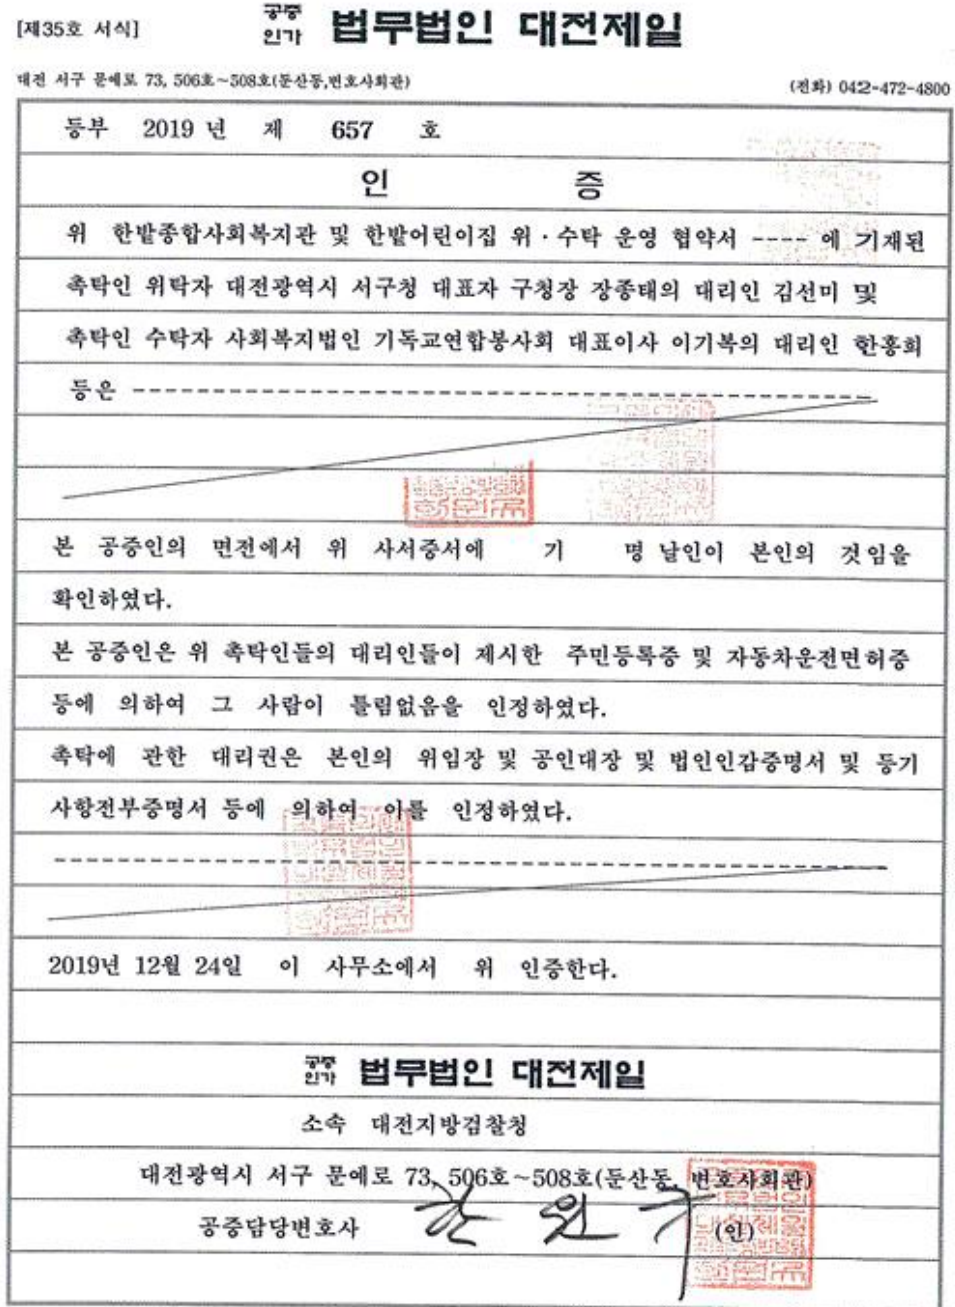 [제35호 서식]
공증인가 법무법인 대전제일
대전 서구 문예로 73, 506호~508호(둔산동,변호사회관)
(전화) 042-472-4800
등부 2019 년 제 657 호
인 증
위 한밭종합사회복지관 및 한밭어린이집 위·수탁 운영 협약서 ---- 에 기재된
촉탁인 위탁자 대전광역시 서구청 대표자 구청장 장종태의 대리인 김선미 및
촉탁인 수탁자 사회복지법인 기독교연합봉사회 대표이사 이기복의 대리인 한홍희
등은 ----------------------------------------------------
본 공증인의 면전에서 위 사서증서에 기 명 날인이 본인의 것임을
확인하였다.
본 공증인은 위 촉탁인들의 대리인들이 제시한 주민등록증 및 자동차운전면허증
등에 의하여 그 사람이 틀림없음을 인정하였다.
촉탁에 관한 대리권은 본인의 위임장 및 공인대장 및 법인인감증명서 및 등기
사항전부증명서 등에 의하여 이를 인정하였다.
2019년 12월 24일 이 사무소에서 위 인증한다.
공증인가 법무법인 대전제일
소속 대전지방검찰청
대전광역시 서구 문예로 73, 506호~508호(둔산동, 변호사회관)
공증담당변호사 (인)